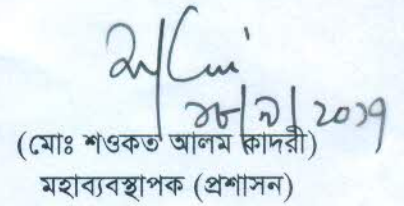 ২৮/৯/2017
(মোঃ শওকত আলম কাদরী)
মহাব্যবস্থাপক (প্রশাসন)